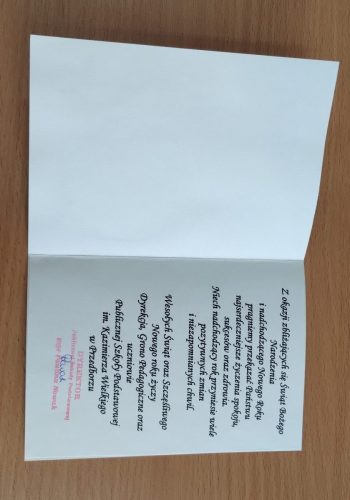 Z okazji zbliżających się Świąt Bożego
Narodzenia
i nadchodzącego Nowego Roku
pragniemy przekazać Państwu
najserdeczniejsze życzenia spokoju,
sukcesów oraz zdrowia.
Niech nadchodzący rok przyniesie wiele
pozytywnych zmian
i niezapomnianych chwil.
Wesołych Świąt oraz Szczęśliwego
Nowego roku życzy
Dyrekcja, Grono pedagogiczne oraz
uczniowie
Publicznej Szkoły Podstawowej
im. Kazimierza Wielkiego
w Przedborzu
DYREKTOR
Publicznej Szkoły Podstawowej
Nowak